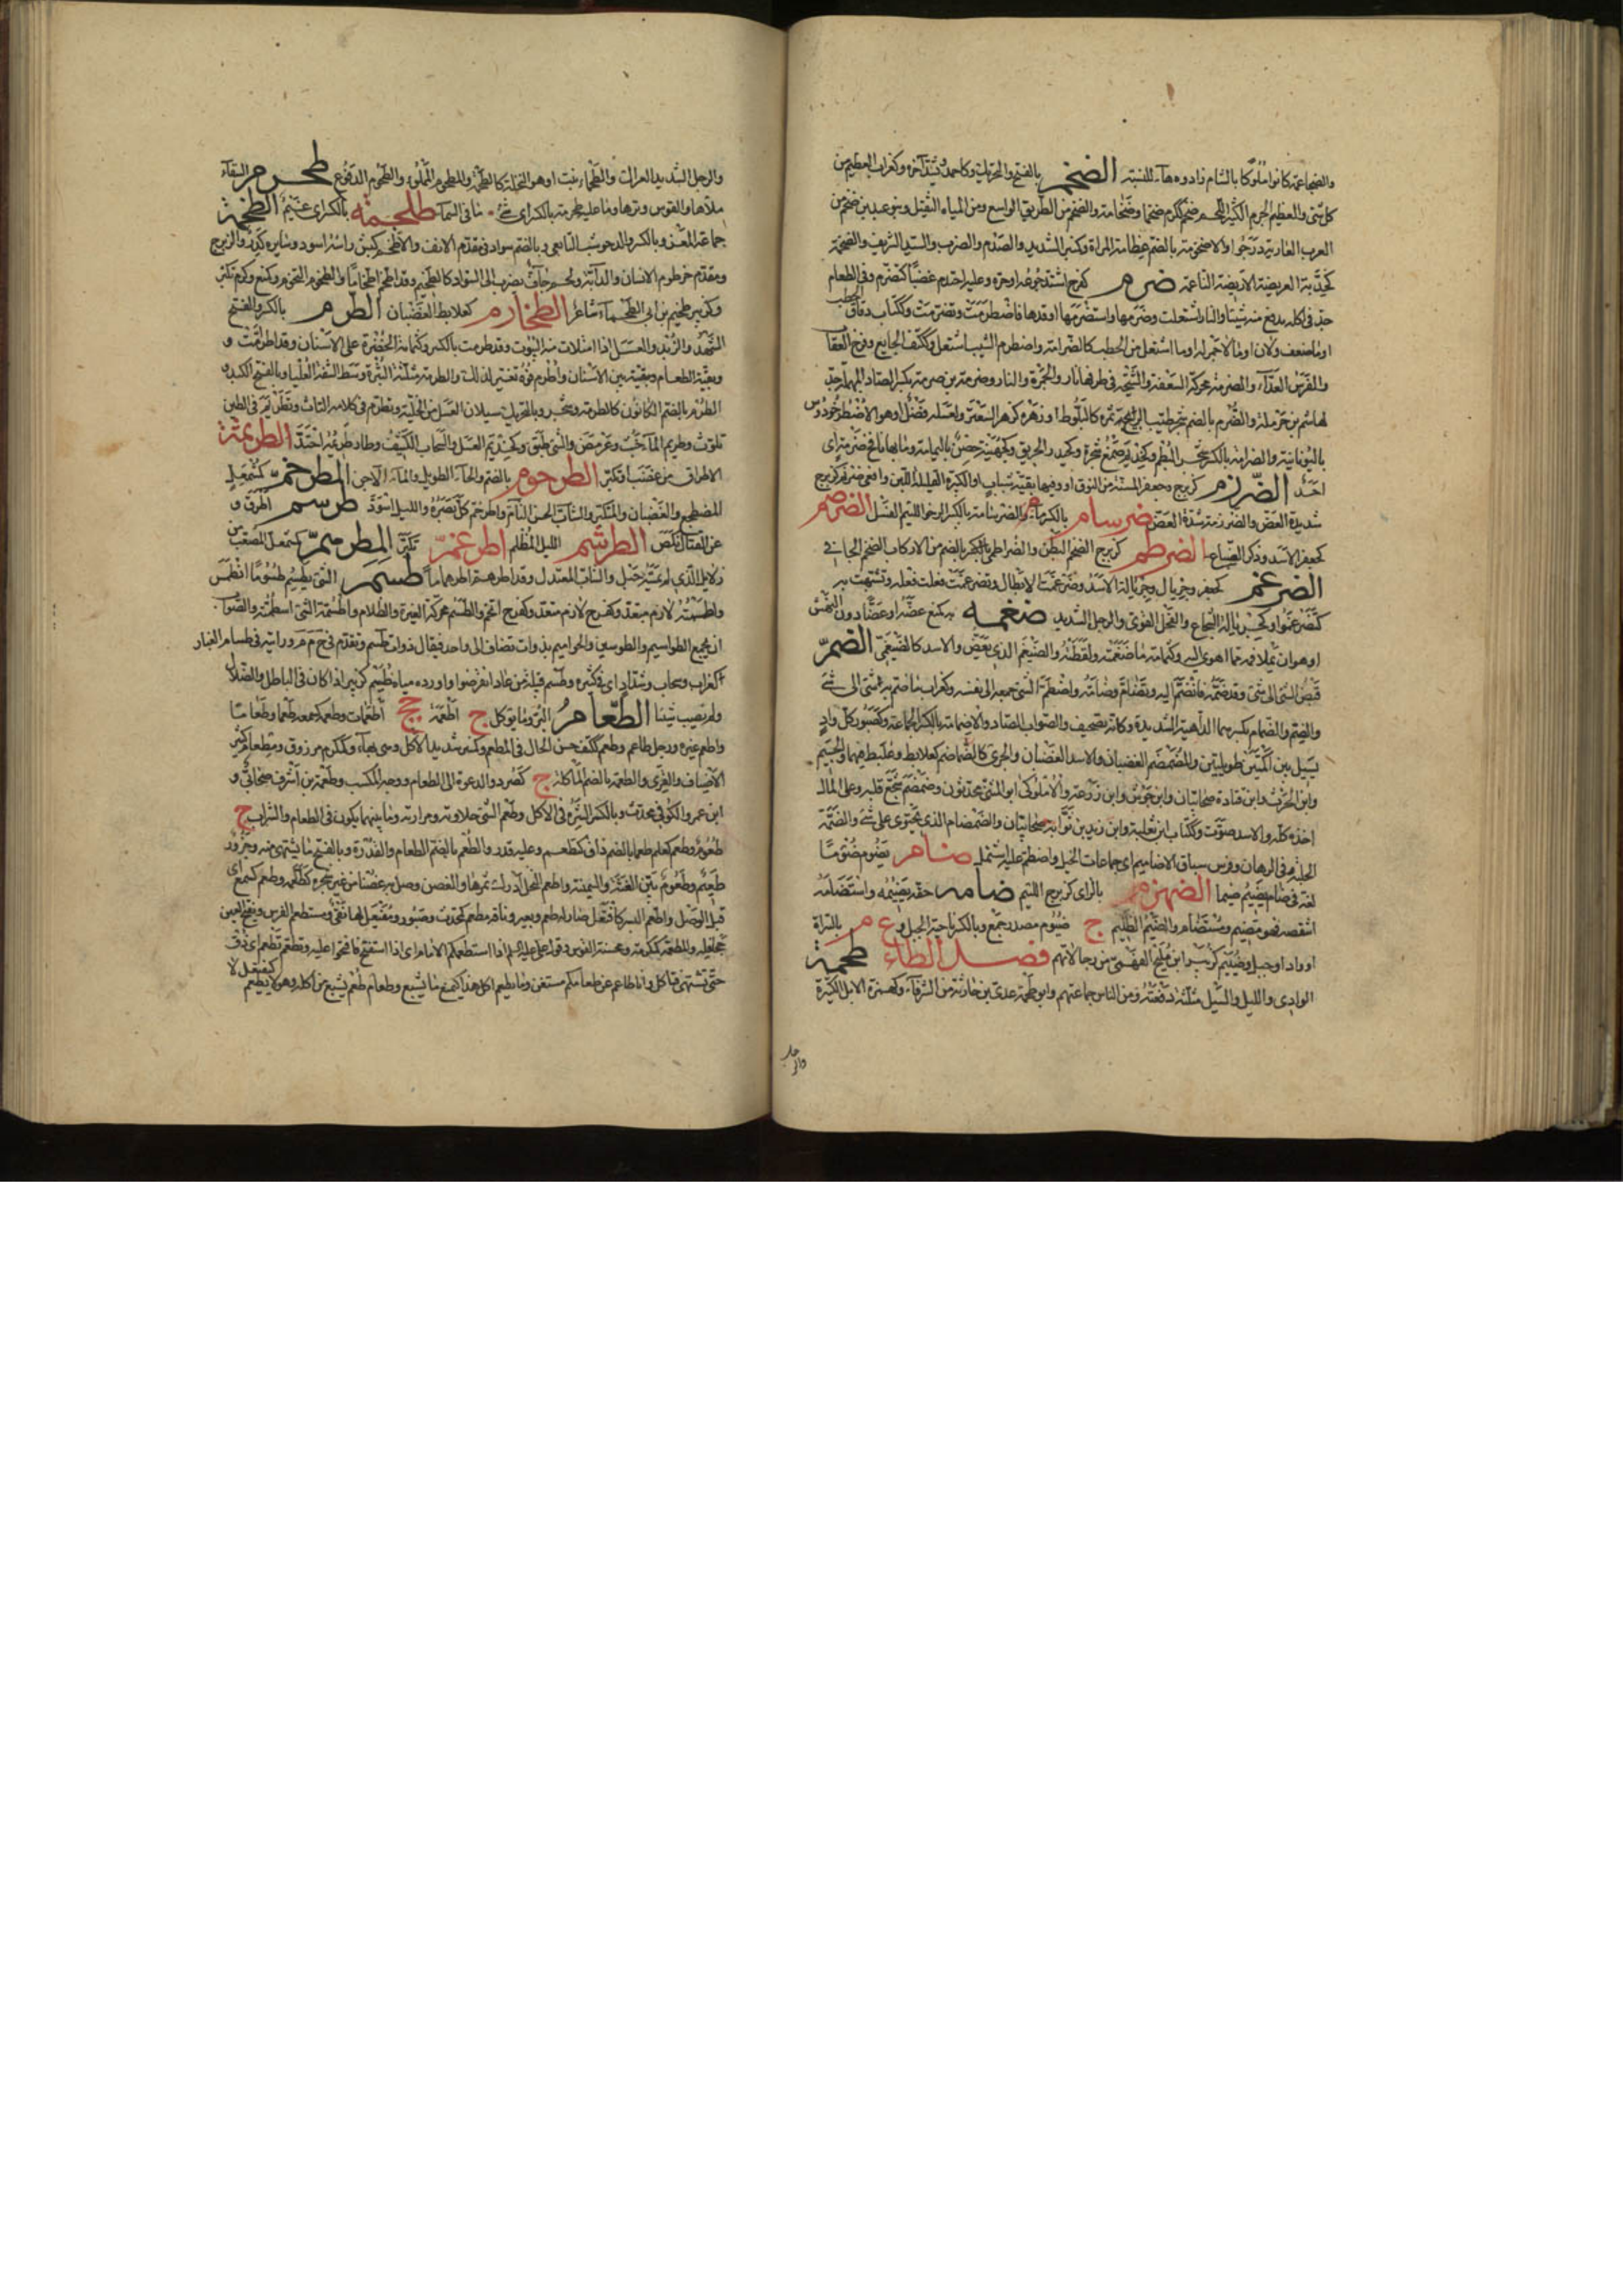 والضجاعمة كانوا ملوكا بالشام زادوه هاء للنسبة الضخم بالفتح والتحريك وكاحمد ويشد آخره وكغراب العظيم من
كل شئ والعظيم الجرم الكثير اللحم ضخم ككرم ضخما وضخامة والضخم من الطريق الواسع ومن المياه الثقيل وبنو عبد بن ضخم من
العرب العاربة درجوا والاضخومة بالضم عظامة المراة وكمنبر الشديد والصدم والضرب والسيد الشريف والضخمة
كخدبة العريضة الاريضة الناعمة ضرم كفرح اشتد جوعه او حره وعليه احتدم غضبا كتضرم وفي الطعام
جد في اكله يدفع منه شيئا والنار اشتعلت وضرمها واستضرمها اوقدها فاضطرمت وتضرمت وككتاب دقاق الحطب
او ما ضعف ولان او ما لا جمر له او ما اشتعل من الحطب كالضرامة واضطرم الشيب اشتعل وككتف الجايع وفرخ العقاب
والفرس العداء والضرمة محركة السعفة والشيحة في طرفها نار والجمرة والنار وضرمة بن صرمة بكسر الصاد المهملة جد
لهاشم بن حرملة والضرم بالضم شجر طيب الريح ثمره كالبلوط او زهره كزهر السعتر ولعسله فضل او هو الاضطوخودوس
باليونانية والضرامة بالكسر شجر البطم وكحذيم صمغ شجرة وكحيدر الحريق وكجهينة حصن باليمامة وما بها نافخ ضرمة اي
احد الضرزم كزبرج وجعفر المسنة من النوق او وفيها بقية شباب او الكبيرة القليلة اللبن وافعى ضرزم كزبرج
شديدة العض والضرزمة شدة العض ضرسام بالكسر ماء والضرسامة بالكسر الرخو اللئيم الفسل الضرضم
كجعفر الاسد وذكر السباع الضرطم كزبرج الضخم البطن والضراطمي بالكسر بالضم من الاركاب الضخم الجافي
الضرغم كجعفر وجريال وجريالة الاسد وضرغمت الابطال وتضرغمت فعلت فعله وتشبهت به
كتضرغموا وكجريالة الشجاع والفحل القوي والرجل الشديد ضغمه به كمنع عضه او عضا دون النهش
او هو ان يملا فمه مما اهوى اليه وكثمامة ما ضغمته ولفظته والضيغم الذي يعض والاسد كالضيغمي الضم
قبض الشئ الى شئ وقد ضمه فانضم اليه وتضام وضامه واضطم الشئ جمعه الى نفسه وكغراب ما ضم به شئ الى شئ
والضم والضمام بكسرهما الداهية الشديدة وكانه تصحيف والصواب الصاد والاضمامة بالكسر الجماعة وكصبور كل واد
يسيل بين اكمتين طويلتين والمضمضم الغضبان والاسد الغضبان والجري كالضماضم كعلابط وعلبط فيهما والجسيم
وابن الحرث وابن قتادة صحابيان وابن جوس وابن زرعة والاملوكي ابو المثنى محدثون وضمضم شجع قلبه وعلى المال
اخذه كله والاسد صوت وككتاب ابن ثعلبة وابن زيد بن ثوابة صحابيان والضمضام الذي يحتوي على شئ والضمة
الحلبة في الرهان وفرس سباق الاضاميم اي جماعات الخيل واضطم عليه اشتمل ضام يضوم ضوما
لغة في ضام يضيم ضيما الضهزم بالزاي كزبرج اللئيم ضامه حقه يضيمه واستضامه
انتقصه فهو مضيم ومستضام والضيم الظلم ج ضيوم مصدر جمع وبالكسر ناحية الجبل وع م بالسراة
او واد او جبل وضييم كزبير ابن مليح الفهمي من رجالاتهم فصل الطاء طحمة
الوادي والليل والسيل مثلثة دفعته ومن الناس جماعتهم وابو طحمة عدي بن حارثة من الشرفاء وكهمزة الابل الكثيرة
والرجل الشديد العراك والطحماء نبت او هو النجيلة كالطحمة والمطحوم المملو والطحوم الدفوع طحرم السقاء
ملاها والقوس وترها وما عليه طحرمة بالكسر اي شئ ما في السماء طلحمة بالكسر اي غيم الطخمة
جماعة المعز وبالكسر والد حوشب التابعي وبالضم سواد في مقدم الانف والاطخم كبش راسه اسود وسايره كدر والزبرج
ومقدم خرطوم الانسان والدابة ولحم جاف يضرب الى السواد كالطخيم وقد اطخم اطخماما والطخوم التخوم وكمنع وكرم تكبر
وكزبير طخيم بن ابي الطخماء شاعر الطخارم كعلابط الغضبان الطرم بالكسر والفتح
الشهد والزبد والعسل اذا امتلات منه البيوت وقد طرمت بالكسر وكثمامة الخضرة على الاسنان وقد اطرمت و
وبقية الطعام وبقيته بين الاسنان واطرم فوه تغير لذلك والطرمة مثلثة النبرة وسط الشفة العليا وبالفتح الكبد و
الطرم بالضم الكانون كالطرمة وشجر وبالتحريك سيلان العسل من الخلية وتطرم في كلامه التاث وتطريم في الطين
تلوث وطريم الماء خبث وعرمض والشئ طبق وكحذيم العسل والسحاب الكثيف وطار طريمه احتد الطريمة
الاطراق من غضب او تكبر الطرحوم بالضم والحاء الطويل والماء الاجن المطرخم كمشمعل
المضطجع والغضبان والمتكبر والشاب الحسن التام واطرخم كل بصره والليل اسود طرسم اطرق و
عن القتال نكص الطرشم الليل المظلم اطرغم تكبر المطرهم كشمعل المصعب من
الابل الذي لم يمسه حبل والشاب المعتدل وقد اطرهم اطرهماما طسم الشئ يطسم طسوما انطمس
وطسمته لازم متعد وكفرح لازم متعد وكفرح اتخم والطسم محركة الغبرة والظلام واطسمة الشئ اسطمته والصواب
ان يجمع الطواسيم والطوسين والحواميم بذوات تضاف الى واحد فيقال ذوات طسم وتقدم في حم ورايته في طسام الغبار
كغراب وسحاب وشداد اي في كثيره وطسم قبيلة من عاد انقرضوا واورده مياه طسيم كزبير اذا كان في الباطل والضلال
ولم يصب شيئا الطعام البر وما يوكل ج اطعمة جج اطعمات وطعمه كسمعه طعما وطعاما
واطعم غيره ورجل طاعم وطعم ككتف حسن الحال في المطعم وكمنبر شديد الاكل وهي بهاء وكمكرم مرزوق ومطعام كثير
الاضياف والقرى والطعمة بالضم الماكلة ج كصرد والدعوة الى الطعام ووجه المكسب وطعمة بن اشرف صحابي و
ابن عمرو الكوفي محدث وبالكسر السيرة في الاكل وطعم الشئ حلاوته ومرارته وما بينهما يكون في الطعام والشراب ج
طعوم وطعم كعلم طعما بالضم ذاق كتطعم وعليه قدر والطعم بالضم الطعام والقدرة وبالفتح ما يشتهى منه وجزور
طعيم وطعوم بين الغثة والسمينة واطعم النخل ادرك ثمرها والغصن وصل به غصنا من غير شجره كطعمه وطعم كسمع اي
قبل الوصل واطعم البسر كافتعل صار له طعم وبعير وناقة مطعم كمحدث وصبور ومفتعل لها نقي ومستطعم الفرس بفتح العين
جحافله والمطعمة كمكرمة ومحسنة القوس وقول علي عليه السلام اذا استطعمكم الامام اي اذا استفتح فافتحوا عليه وتطعم تطعم اي ذق
حتى تشتهي فتاكل وانا طاعم عن طعامكم مستغن وما يطعم آكل هذا كيمنع ما يشبع وطعام طعم يشبع من اكله وهو لا يطعم كيفتعل لا